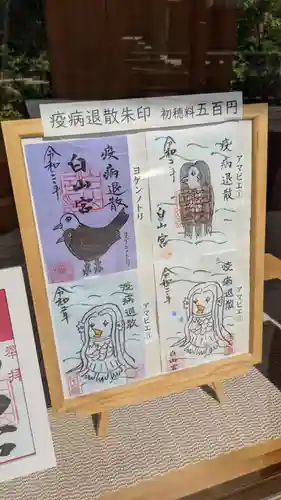 疫病退散朱印 初穂料五百円
疫病退散
白山宮
令和二年
ヨゲンノトリ
ヨゲンノトリ
アマビエ①
疫病退散
令和二年
白山宮
アマビエ
疫病退散
令和二年
アマビエ
疫病退散
令和二年
白山宮
奉拝